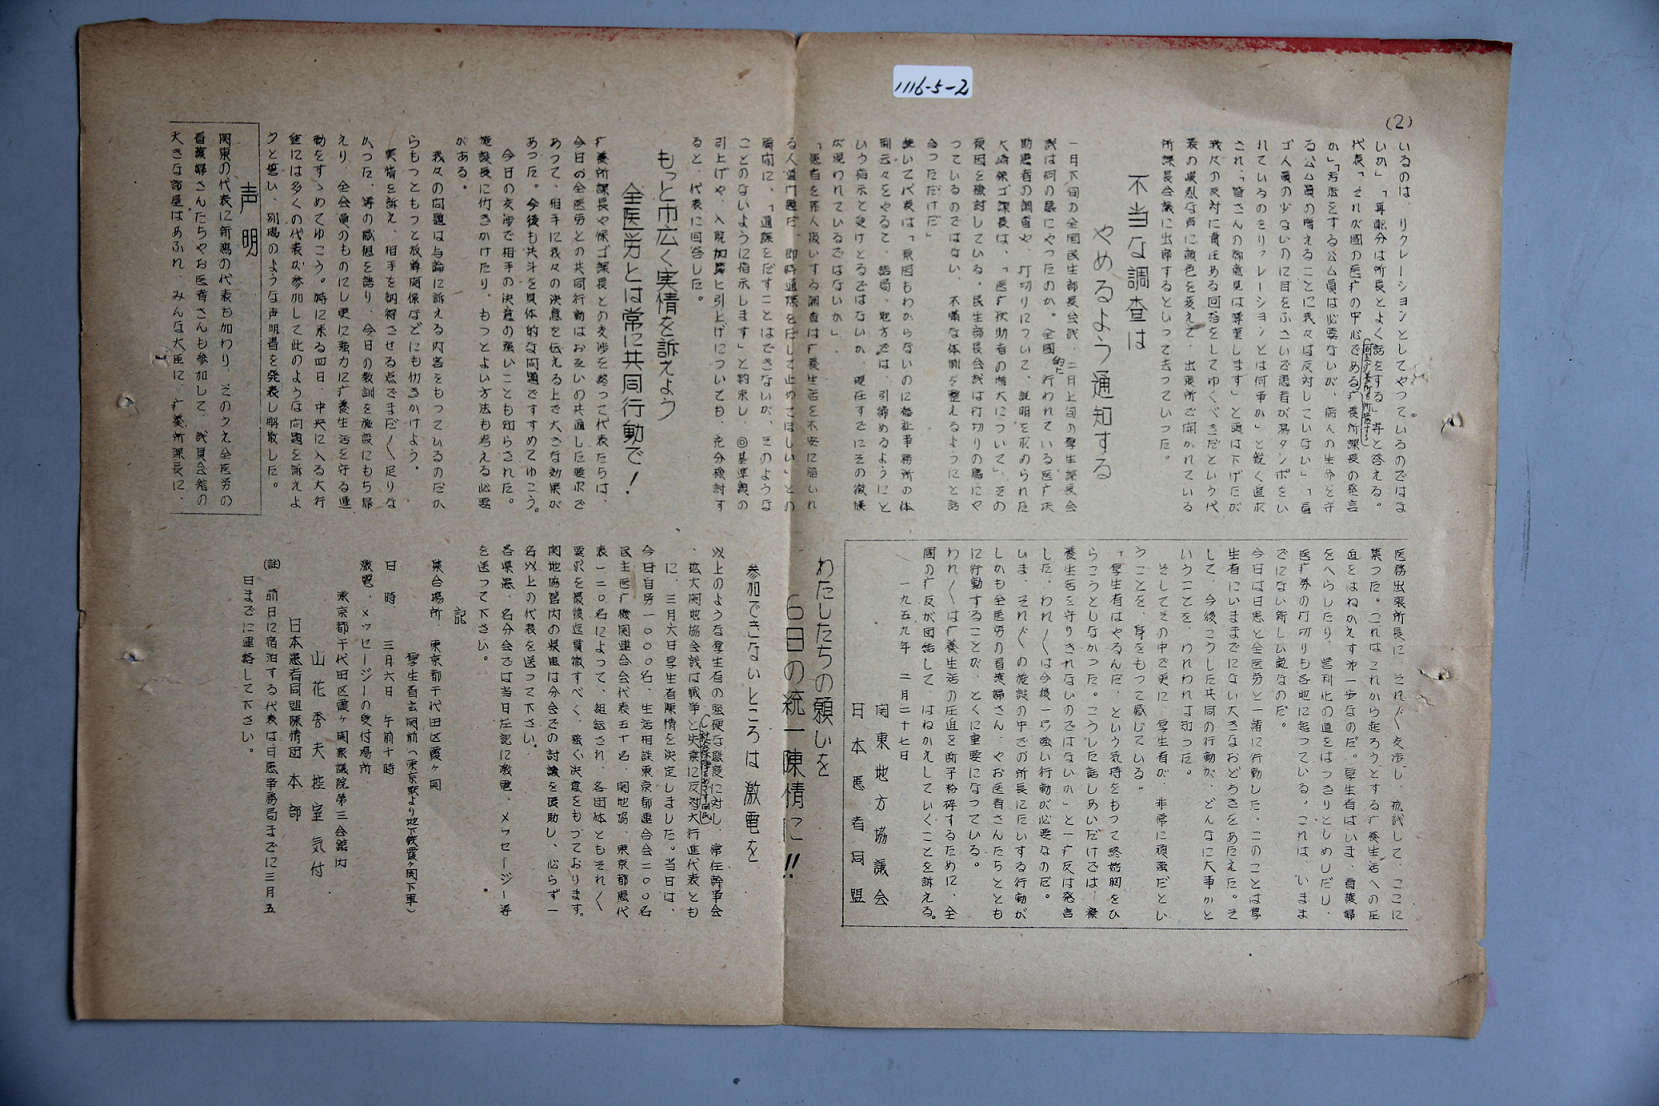 1116-5-2
(2)
いるのは、リクレーションとしてやっているのではな
いか」「再配分は所長とよく話をする」等と答える。
(国立の療養所を所管する)
代表「それが国の医疗の中心である疗養所課長の発言
か」「看護をする公ム員は必要ないが、病人の生命を守
る公ム員の増えることに我々は反対していない」「看
ゴ人員の少ないのに目をふさいで患者が湯タンポをい
れているのをリクレーションとは何事か」と鋭く追求
され、「皆さんの御意見は尊重します」と頭は下げたが
我々の反対に責任ある回答をしてゆくべきだという代
表の嘆乱な声に顔色を変えて、出来所で開かれている
所課長会議に出席するといって去っていった。
不当な調査は
やめるよう通知する
一月下旬の全国民生部長会議、二月上旬の厚生課長会
議は何の為にやったのか。全国的に行われている医疗扶
助患者の調査や、打切りについて、説明を求められた
大崎保ゴ課長は、「医疗扶助者の増大について、その
原因を検討している。民生部長会議は打切りの為にや
っているのではない、不備な体制を整えるようにと話
あっただけだ」
続いて代表は「原因もわからないのに福祉事務所の体
制云々をやると、結局、地方では、引締めるようにと
いう指示と受けとるではないか、現在すでにその徴候
が現われているではないか」、
「患者を罪人扱いする調査は疗養生活を不安に陥いれ
る人道問題だ、即時通牒を出して止めてほしい」との
質問に、「通牒をだすことはできないが、そのような
ことのないように指示します」と約束し、◎基準の
引上げや、入院加算と引上げについても、充分検討す
ると、代表に回答した。
もっと巾広く実情を訴えよう
全医労とは常に共同行動で！
疗養所課長や保ゴ課長との交渉を終って代表たちは、
今日の全医労との共同行動はお互いの共通した要求で
あって、相手に我々の決意を伝える上で大きな効果が
あった。今後も共斗を具体的な問題ですすめてゆこう。
今日の交渉で相手の決意の強いことも知らされた。
施設長に働きかけたり、もっとよい方法も考える必要
がある。
我々の問題は与論に訴える内容をもっているのだか
らもっともっと報道関係などにも働きかけよう。
実情を訴え、相手を納得させる点でまだ〱足りな
かった、等の感想を語り、今日の教訓を施設にもち帰
えり、全会員のものにし更に強力に疗養生活を守る運
動をすゝめてゆこう。特に来る四日、中央に入る大行
進には多くの代表が参加して此のような問題を訴えよ
うと誓い、別掲のような声明書を発表し解散した。
声明
関東の代表に新潟の代表も加わり、そのうえ全医労の
看護婦さんたちやお医者さんも参加して、議員会館の
大きな部屋はあふれ、みんな大臣に、疗養所課長に、
医務出張所長に、それ〲交渉し、抗議して、ここに
集った。これはこれから起ろうとする疗養生活への圧
迫をはねかえす第一歩なのだ。厚生省はいま、看護婦
をへらしたり、営利化の道をはっきりとしめしだし、
医疗券の打切りも各地に起っている。これは、いまま
でにない新しい敵なのだ。
今日は日患と全医労と一緒に行動した、このことは厚
生省にいままでにない大きなおどろきをあたえた。そ
して、今後こうした共同の行動が、どんなに大事かと
いうことを、われわれは知った。
そしてその中で更に、厚生省が、非常に頑強だとい
うことを、身をもって感じている。
「厚生省はやるんだ、という気持をもって終始胸をひ
らこうとしなかった。こうした話しあいだけでは「療
養生活を守りきれないのではないか」と一疗友は発言
した。われ〱は今後一そう強い行動が必要なのだ。
いま、それ〲の施設の中での所長にたいする行動が
しかも全医労の看護婦さん、やお医者さんたちととも
に行動することが、とくに重要になっている。
われ〱は疗養生活の圧迫を断乎粉砕するために、全
国の疗友が団結して、はねかえしていくことを訴える。
一九五九年 二月二十七日
関東地方協議会
日本患者同盟
わたしたちの願いを
6日の統一陳情に!!
参加できないところは激電を
以上のような厚生省の強硬な態度に対し、常任幹事会
(社会保障をめざす国民)
、拡大関地協会議は戦争と失業に反対大行進代表とも
に、三月六日厚生省陳情を決定しました。当日は、
今日自労一〇〇〇名、生活相談東京都連合会二〇〇名
民主医疗機関連合会代表五十名、関地協、東京都患代
表一二〇名によって、組織され、各団体ともそれ〲
要求を最後迄貫徹すべく、強く決意をもっております。
関地協管内の県患は分会での討議を援助し、必らず一
名以上の代表を送って下さい。
各県患、各分会では当日左記に激電、メッセージー等
を送って下さい。
記
集合場所 東京都千代田区霞ヶ関
厚生省玄関前（東京駅より地下鉄霞ヶ関下車）
日時 三月六日 午前十時
激電、メッセージーの受付場所
東京都千代田区霞ヶ関衆議院第三会館内
山花秀夫控室気付
日本患者同盟陳情団本部
(註) 前日に宿泊する代表は日患事務局までに三月五
日までに連絡して下さい。